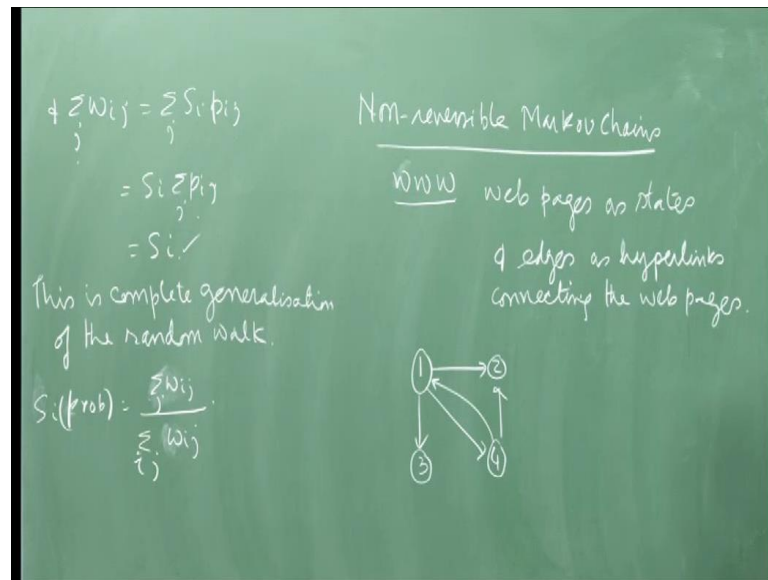 & Σ_j wij = Σ_j Si pij
= Si Σ_j pij
= Si ✓
This is complete generalisation
of the random walk.
Si(prob) = Σ_j wij / Σ_i,j wij
Non-reversible Markov Chains
WWW web pages as states
& edges as hyperlinks
connecting the web pages.
1 2
3 4